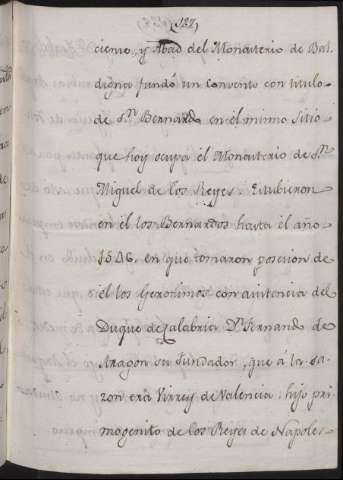 (187)
ciente, y Abad del Monasterio de Bal-
digna fundó un convento con titulo
de S.ⁿ Bernardo en el mismo Sitio
que hoy ocupa el Monasterio de S.ⁿ
Miguel de los Reyes. Estubieron
en él los Bernardos hasta el año
1546, en que tomaron posecion de
él los Geronimos con asistencia del
Duque de Calabria Dⁿ Fernando de
Aragon su Fundador, que a la sa-
zon era Virrey de Valencia: hijo pri-
mogenito de los Reyes de Napoles